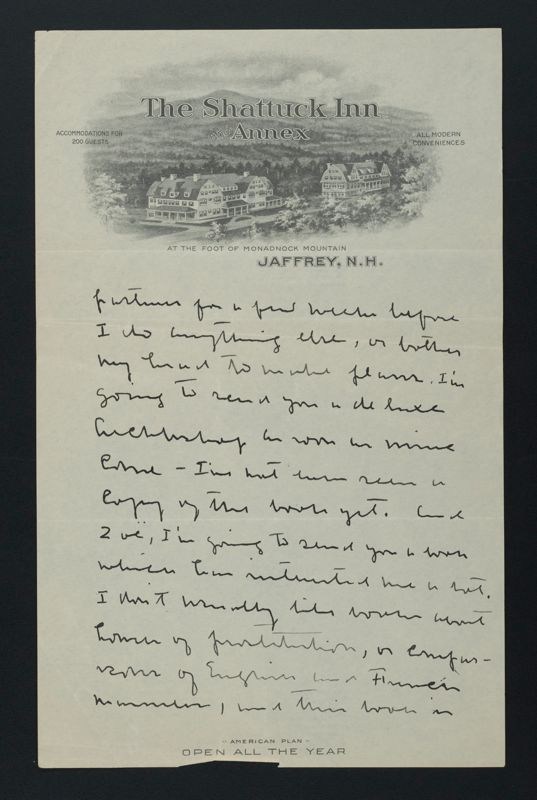 The Shattuck Inn
and Annex
ACCOMMODATIONS FOR
200 GUESTS
ALL MODERN
CONVENIENCES
AT THE FOOT OF MONADNOCK MOUNTAIN
JAFFREY, N.H.
further for a few weeks before
I do anything else, or bother
my head to make plans. I'm
going to send you a de luxe
Archbishop as soon as mine
come – I've not even seen a
copy of the book yet. And
Zoë, I'm going to send you a book
which has interested me a lot.
I don't usually like books about
houses of prostitution, or compar-
isons of English and French
manners, and this book is
- AMERICAN PLAN -
OPEN ALL THE YEAR